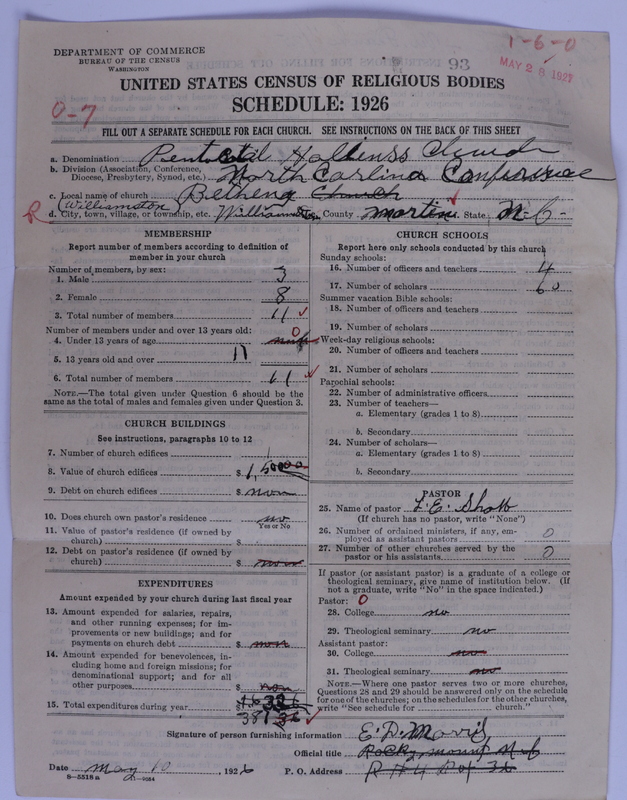 1-6-0
DEPARTMENT OF COMMERCE
BUREAU OF THE CENSUS
WASHINGTON
93
MAY 28 1927
UNITED STATES CENSUS OF RELIGIOUS BODIES
SCHEDULE: 1926
0-7
FILL OUT A SEPARATE SCHEDULE FOR EACH CHURCH. SEE INSTRUCTIONS ON THE BACK OF THIS SHEET
a. Denomination
b. Division (Association, Conference, Diocese, Presbytery, Synod, etc.) North
c. Local name of church Church
(Williamston
R d. City, town, village, or township, etc. County State N-C-
MEMBERSHIP
Report number of members according to definition of
member in your church
Number of members, by sex:
1. Male 3
2. Female 8
3. Total number of members 11
Number of members under and over 13 years old:
4. Under 13 years of age 0
5. 13 years old and over 11
6. Total number of members 11
NOTE.—The total given under Question 6 should be
same as the total of males and females given under Question 3.
CHURCH BUILDINGS
See instructions, paragraphs 10 to 12
7. Number of church edifices 1
8. Value of church edifices $
9. Debt on church edifices $ non
10. Does church own pastor's residence no
Yes or No
11. Value of pastor's residence (if owned by
church) $
12. Debt on pastor's residence (if owned by
church) $ non
EXPENDITURES
Amount expended by your church during last fiscal year
13. Amount expended for salaries, repairs,
and other running expenses; for im-
provements or new buildings; and for
payments on church debt $ non
14. Amount expended for benevolences, in-
cluding home and foreign missions; for
denominational support; and for all
other purposes $ non
15. Total expenditures during year $
CHURCH SCHOOLS
Report here only schools conducted by this church
Sunday schools:
16. Number of officers and teachers 4
17. Number of scholars 60
Summer vacation Bible schools:
18. Number of officers and teachers
19. Number of scholars
Week-day religious schools:
20. Number of officers and teachers
21. Number of scholars
Parochial schools:
22. Number of administrative officers
23. Number of teachers—
a. Elementary (grades 1 to 8)
b. Secondary
24. Number of scholars—
a. Elementary (grades 1 to 8)
b. Secondary
PASTOR
25. Name of pastor L.E.
(If church has no pastor, write "None")
26. Number of ordained ministers, if any, em-
ployed as assistant pastors 0
27. Number of other churches served by the
pastor or his assistants 0
If pastor (or assistant pastor) is a graduate of a college or
theological seminary, give name of institution below. (If
not a graduate, write "No" in the space indicated.)
Pastor: 0
28. College no
29. Theological seminary no
Assistant pastor:
30. College no
31. Theological seminary no
NOTE.—Where one pastor serves two or more churches,
Questions 28 and 29 should be answered only on the schedule
for one of the churches; on the schedules for the other churches,
write "See schedule for church."
Signature of person furnishing information E. D. Morris
Official title Rocky mount N-C
Date may 10, 1926 P. O. Address
8-5518a